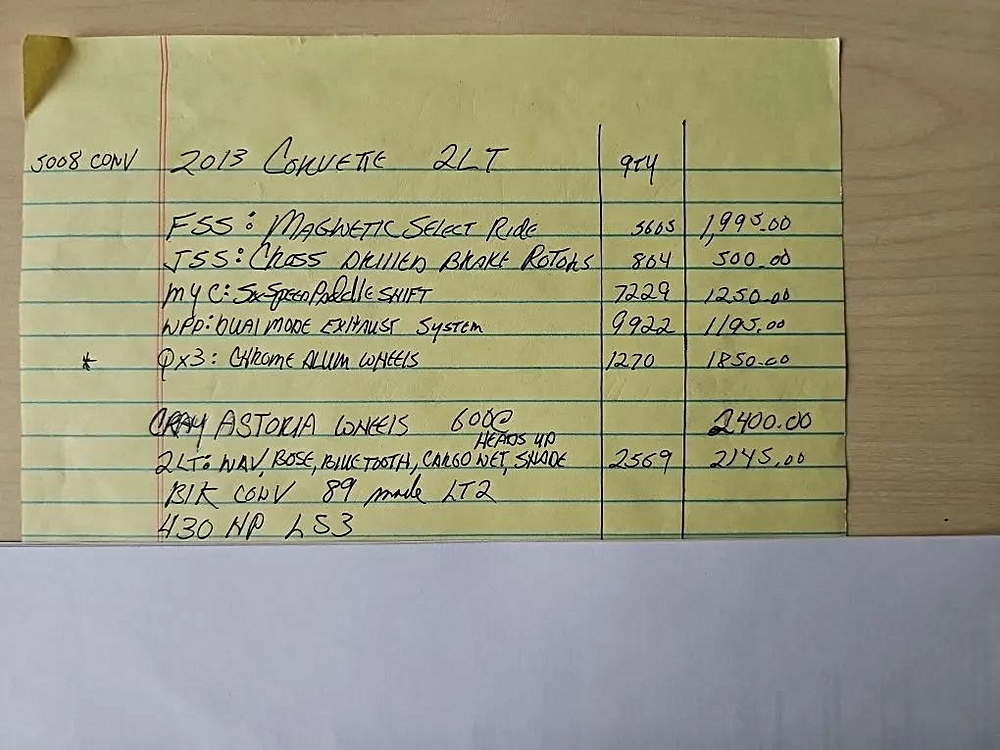 5008 CONV 2013 CORVETTE 2LT QTY
FSS: MAGNETIC SELECT RIDE 5605 1,995.00
J55: CROSS DRILLED BRAKE ROTORS 804 500.00
MYC: SIX SPEED PADDLE SHIFT 7229 1250.00
NPP: DUAL MODE EXHAUST SYSTEM 9922 1195.00
* QX3: CHROME ALUM WHEELS 1270 1850.00
CRAY ASTORIA WHEELS 2400.00
HEADS UP
2LT: NAV, BOSE, BLUETOOTH, CARGO NET, SHADE 2569 2145.00
BLK CONV 89 made LT2
430 HP LS3